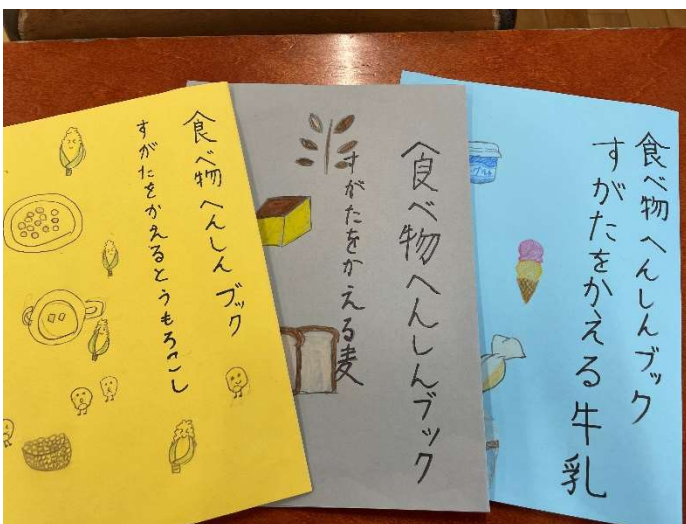 食べ物へんしんブック
すがたをかえる牛乳
食べ物へんしんブック
すがたをかえる麦
食べ物へんしんブック
すがたをかえるとうもろこし